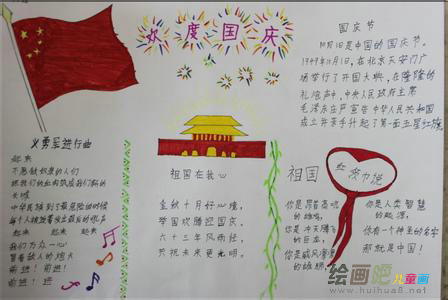 欢度国庆
国庆节
10月1日是中国的国庆节。
1949年10月1日,在北京天安门广
场举行了开国大典,在隆隆的
礼炮声中,中央人民政府主席
毛泽东庄严宣告中华人民共和国
成立并亲手升起了第一面五星红旗
义勇军进行曲
起来
不愿做奴隶的人们
把我们的血肉筑成我们新的
长城
中华民族到了最危险的时候
每个人被迫着发出最后的吼声
起来 起来 起来
我们万众一心
冒着敌人的炮火
前进!前进!
前进!进
祖国在我心
金秋十月好心境,
举国欢腾迎国庆。
六十三年风雨狂,
共祝未来更光明。
祖国
红领巾说
你是昂首高吭
的雄鸡,
你是冲天腾飞
的巨龙,
你是威风凛凛
的雄狮
你是人类智慧
的起源,
你有一个神圣的名字
那就是中国!
绘画吧儿童画
www.huihua8.net